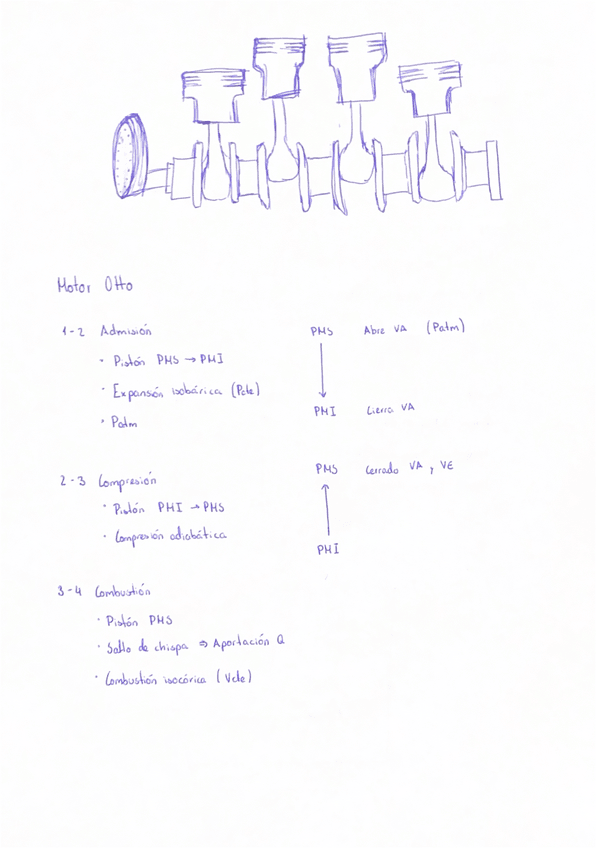 Motor Otto
1-2 Admisión
PMS Abre VA (Patm)
· Pistón PMS → PMI
· Expansión isobárica (Pcte)
PMI Cierra VA
· Patm
PMS Cerrado VA, VE
2-3 Compresión
· Pistón PMI → PMS
· Compresión adiabática
PMI
3-4 Combustión
· Pistón PMS
· Salto de chispa ⇒ Aportación Q
· Combustión isocórica (Vcte)